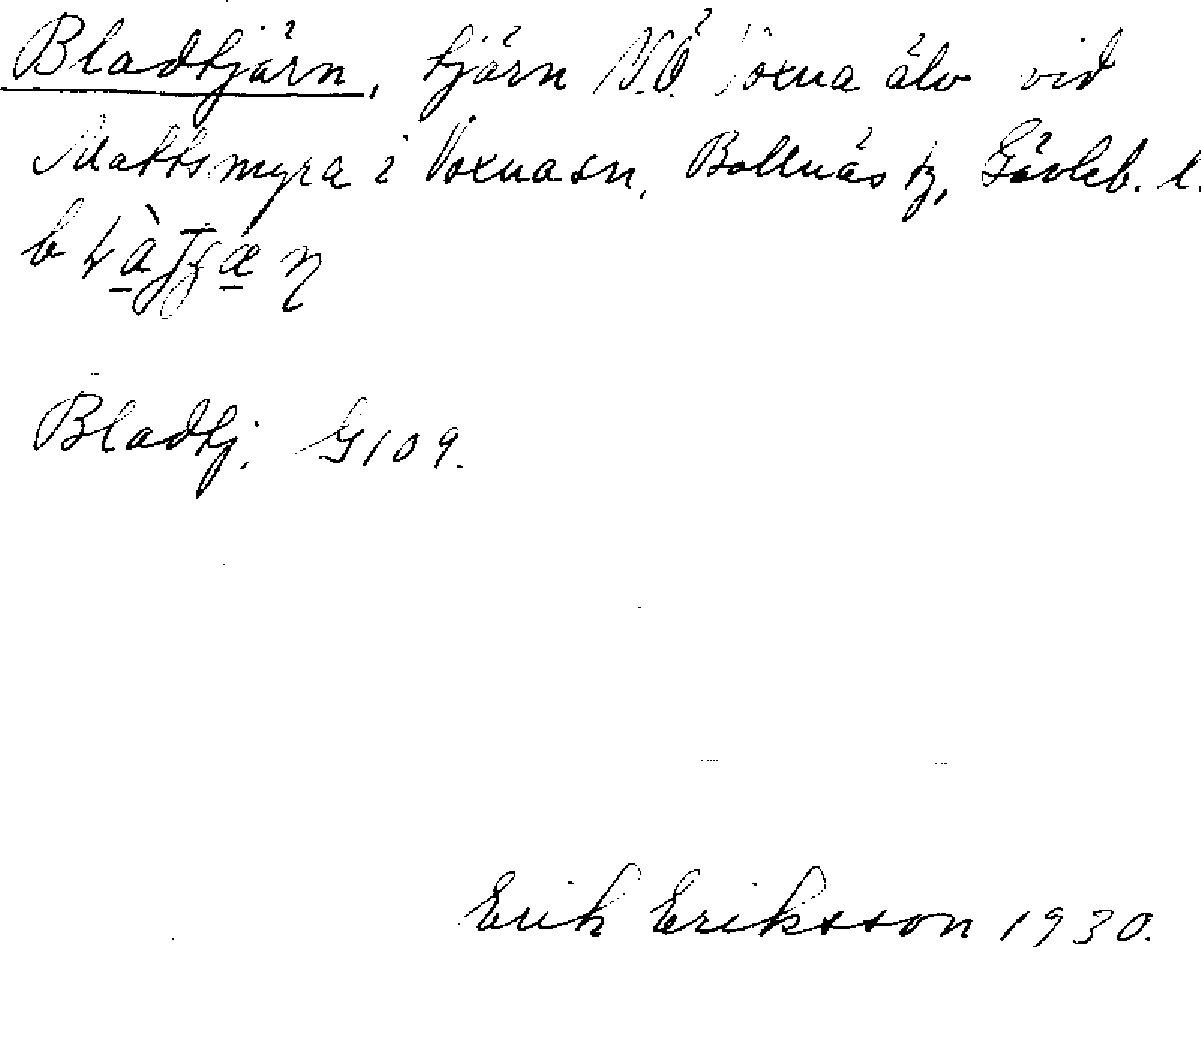 Bladtjärn, tjärn N.Ö. Voxna älv vid
Mattsmyra i Voxna sn, Bollnäs tg, Gävleb. l.
Bladtj. G109.
Erik Eriksson 1930.